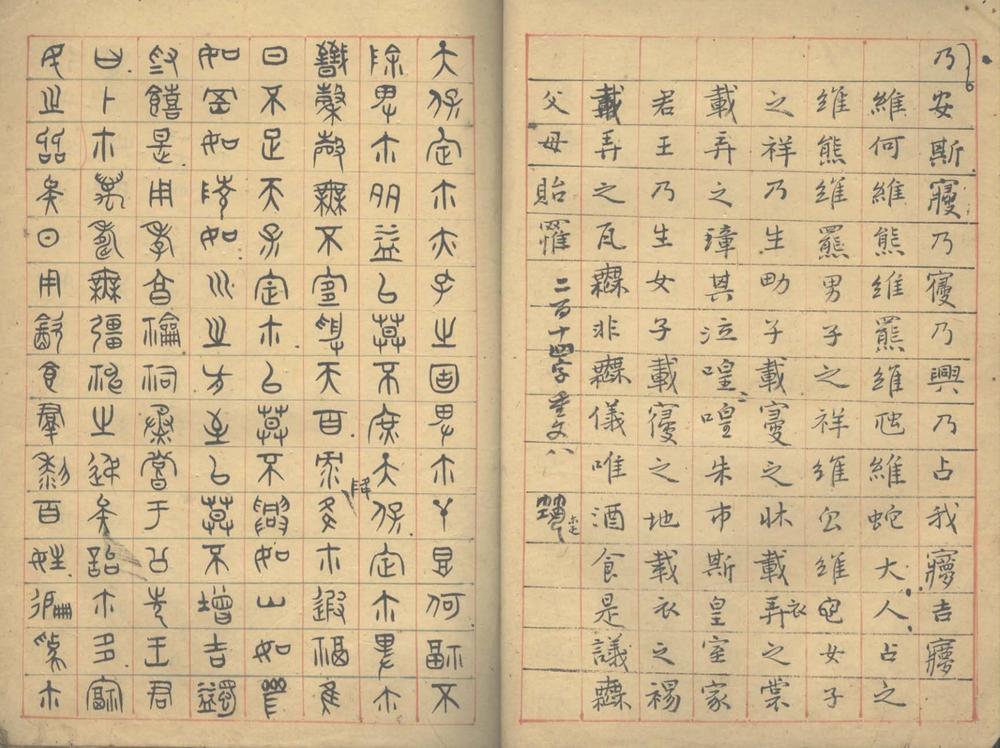 乃安斯寢乃寢乃興乃占我㝱吉㝱
維何維熊維羆維虺維蛇大人占之
維熊維羆男子之祥維虺維虵女子
之祥乃生男子載寢之牀載衣之裳
載弄之璋其泣喤喤朱巿斯皇室家
君王乃生女子載寢之地載衣之裼
載弄之瓦無非無儀唯酒食是議無
父母貽罹 二百十四字重文八
天保定尒亦孔之固俾尒單厚何福不
除俾尒多益以莫不庶天保定尒俾尒
戩罄穀無不宜受天百祿降尒遐福隹
日不足天保定尒以莫不興如山如阜
如岡如陵如川之方至以莫不增吉蠲
為饎是用孝享禴祠烝嘗于公先王君
曰卜尒萬壽無疆神之弔矣詒尒多福
民之質矣日用飲食群黎百姓徧為尒